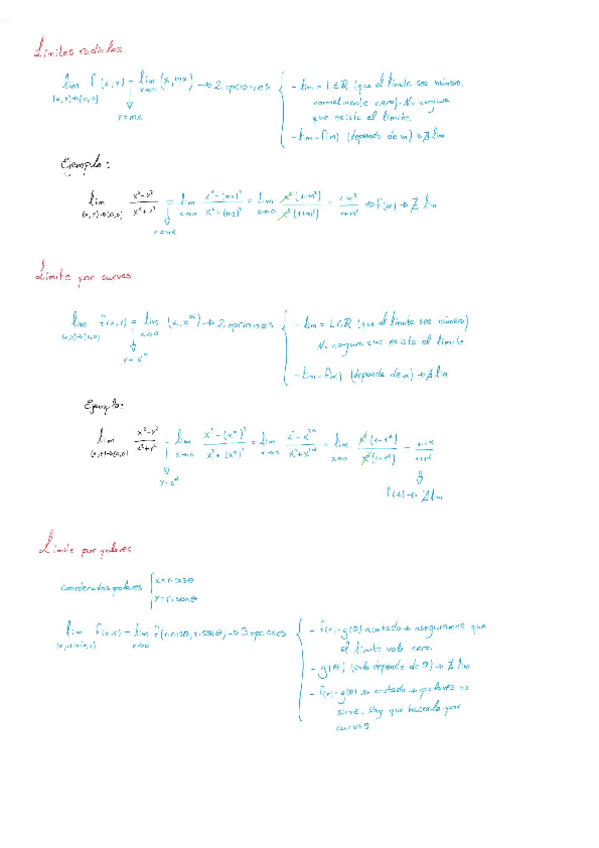 Límites radiales
lim f(x,y) = lim (x,mx) → 2 opciones { - lim = L∈R (que el límite sea número,
(x,y)→(0,0) x→0
y=mx
normalmente cero). No asegura
que exista el límite.
- lim = f(m) (depende de m) → ∄ lim
Ejemplo:
lim x²-y² / x²+y² = lim x²-(mx)² / x²+(mx)² = lim x²(1-m²) / x²(1+m²) = 1-m² / 1+m² ⇒ f(m) → ∄ lim
(x,y)→(0,0) x→0 x→0
y=mx
Límite por curvas
lim f(x,y) = lim (x,x^α) → 2 opciones { - lim = L∈R (que el límite sea número)
(x,y)→(0,0) x→0
y=x^α
No asegura que exista el límite
- lim = f(α) (depende de α) → ∄ lim
Ejemplo:
lim x²-y² / x²+y² = lim x²-(x^α)² / x²+(x^α)² = lim x²-x^2α / x²+x^2α = lim
(x,y)→(0,0) x→0 x→0 x→0
y=x^α
f(α) → ∄ lim
Límite por polares
coordenadas polares { x=r·cosθ
y=r·senθ
lim f(x,y) = lim f(r·cosθ, r·senθ) → 3 opciones { - f(r)·g(θ) acotado → aseguramos que
(x,y)→(0,0) r→0
el límite vale cero.
- g(θ) (solo depende de θ) → ∄ lim
- f(r)·g(θ) no acotado → polares no
sirve. Hay que hacerlo por
curvas